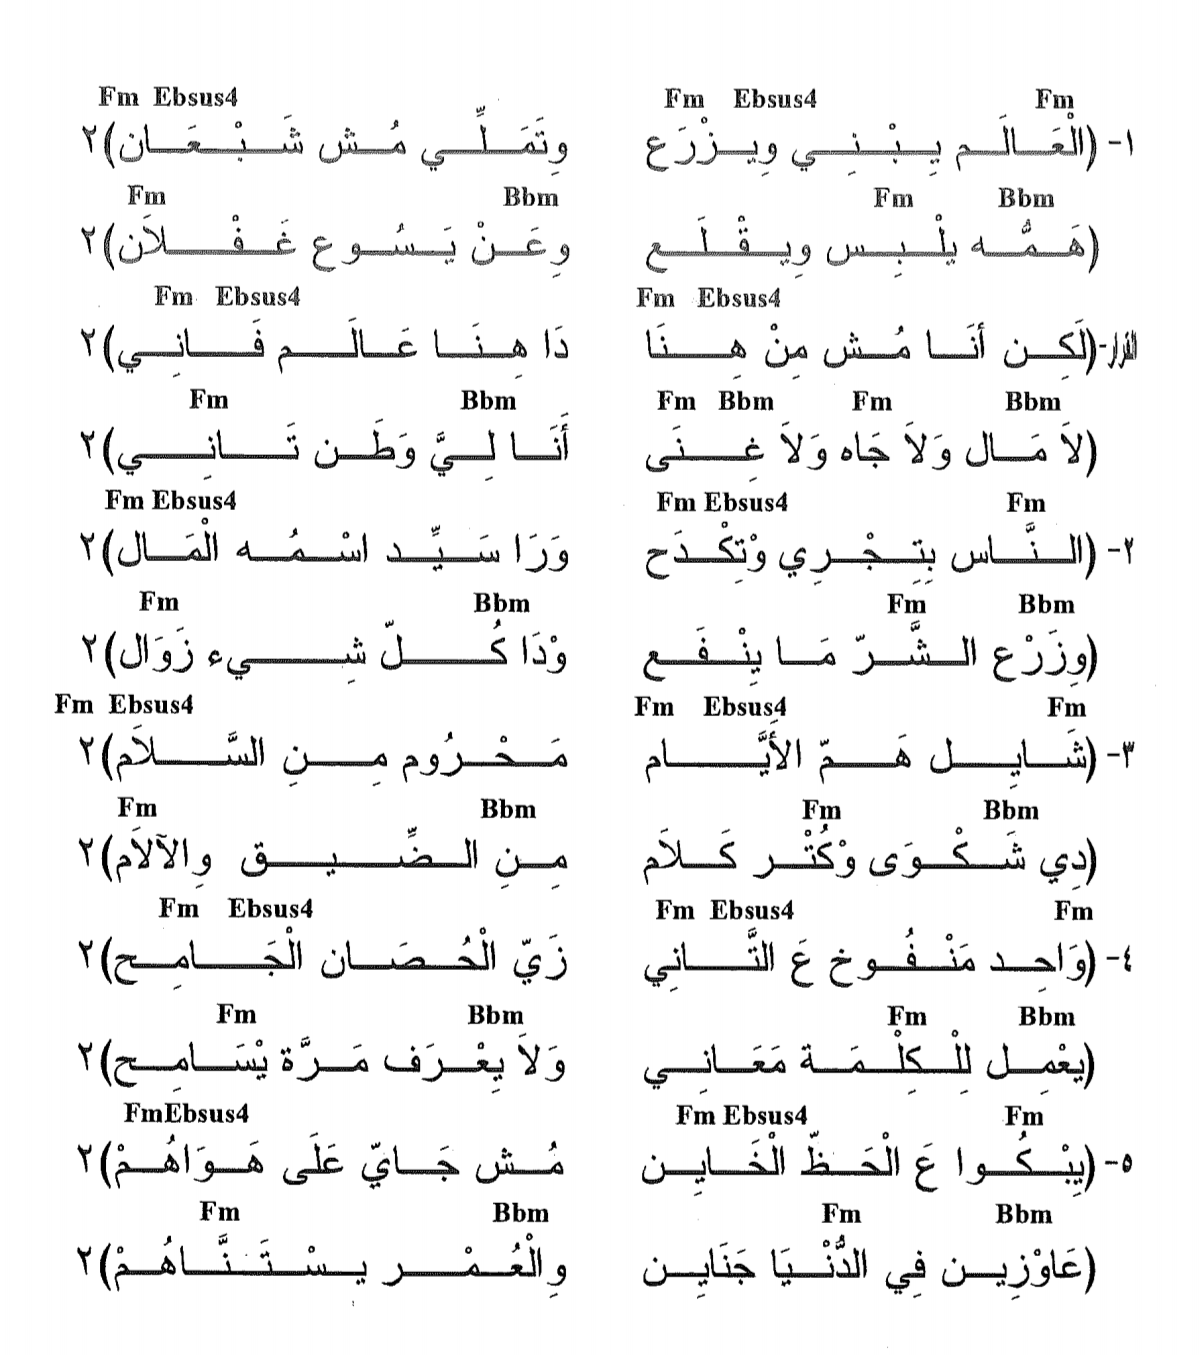 Fm Ebsus4 Fm Ebsus4 Fm
١- (الْعَالَم يِبْنِي وِيزْرَع وِتَمَلِّي مُش شَبْعَان)٢
Fm Bbm Fm Bbm
(هَمُّه يلْبِس وِيقْلَع وِعَنْ يَسُوع غَفْلاَن)٢
Fm Ebsus4 Fm Ebsus4
القرار-(لَكِن أنَا مُش مِنْ هِنَا دَا هِنَا عَالَم فَانِي)٢
Fm Bbm Fm Bbm Fm Bbm
(لاَ مَال وَلاَ جَاه وَلاَ غِنَى أَنَا لِيَّ وَطَن تَانِي)٢
Fm Ebsus4 Fm Ebsus4 Fm
٢- (النَّاس بِتِجْرِي وْتِكْدَح وَرَا سَيِّد اسْمُه الْمَال)٢
Fm Bbm Fm Bbm
(وِزَرْع الشَّرّ مَا يِنْفَع وْدَا كُلّ شِيء زَوَال)٢
Fm Ebsus4 Fm Ebsus4 Fm
٣- (شَايِل هَمّ الأَيَّام مَحْرُوم مِنِ السَّلاَم)٢
Fm Bbm Fm Bbm
(دِي شَكْوَى وْكُتْر كَلاَم مِنِ الضِّيق وِالآلاَم)٢
Fm Ebsus4 Fm Ebsus4 Fm
٤- (وَاحِد مَنْفُوخ عَ التَّانِي زَيّ الْحُصَان الْجَامِح)٢
Fm Bbm Fm Bbm
(يعْمِل لِلْكِلْمَة مَعَانِي وَلاَ يِعْرَف مَرَّة يْسَامِح)٢
FmEbsus4 Fm Ebsus4 Fm
٥- (يِبْكُوا عَ الْحَظّ الْخَايِن مُش جَايّ عَلَى هَوَاهُمْ)٢
Fm Bbm Fm Bbm
(عَاوْزِين فِي الدُّنْيَا جَنَايِن وِالْعُمْر يِسْتَنَّاهُمْ)٢